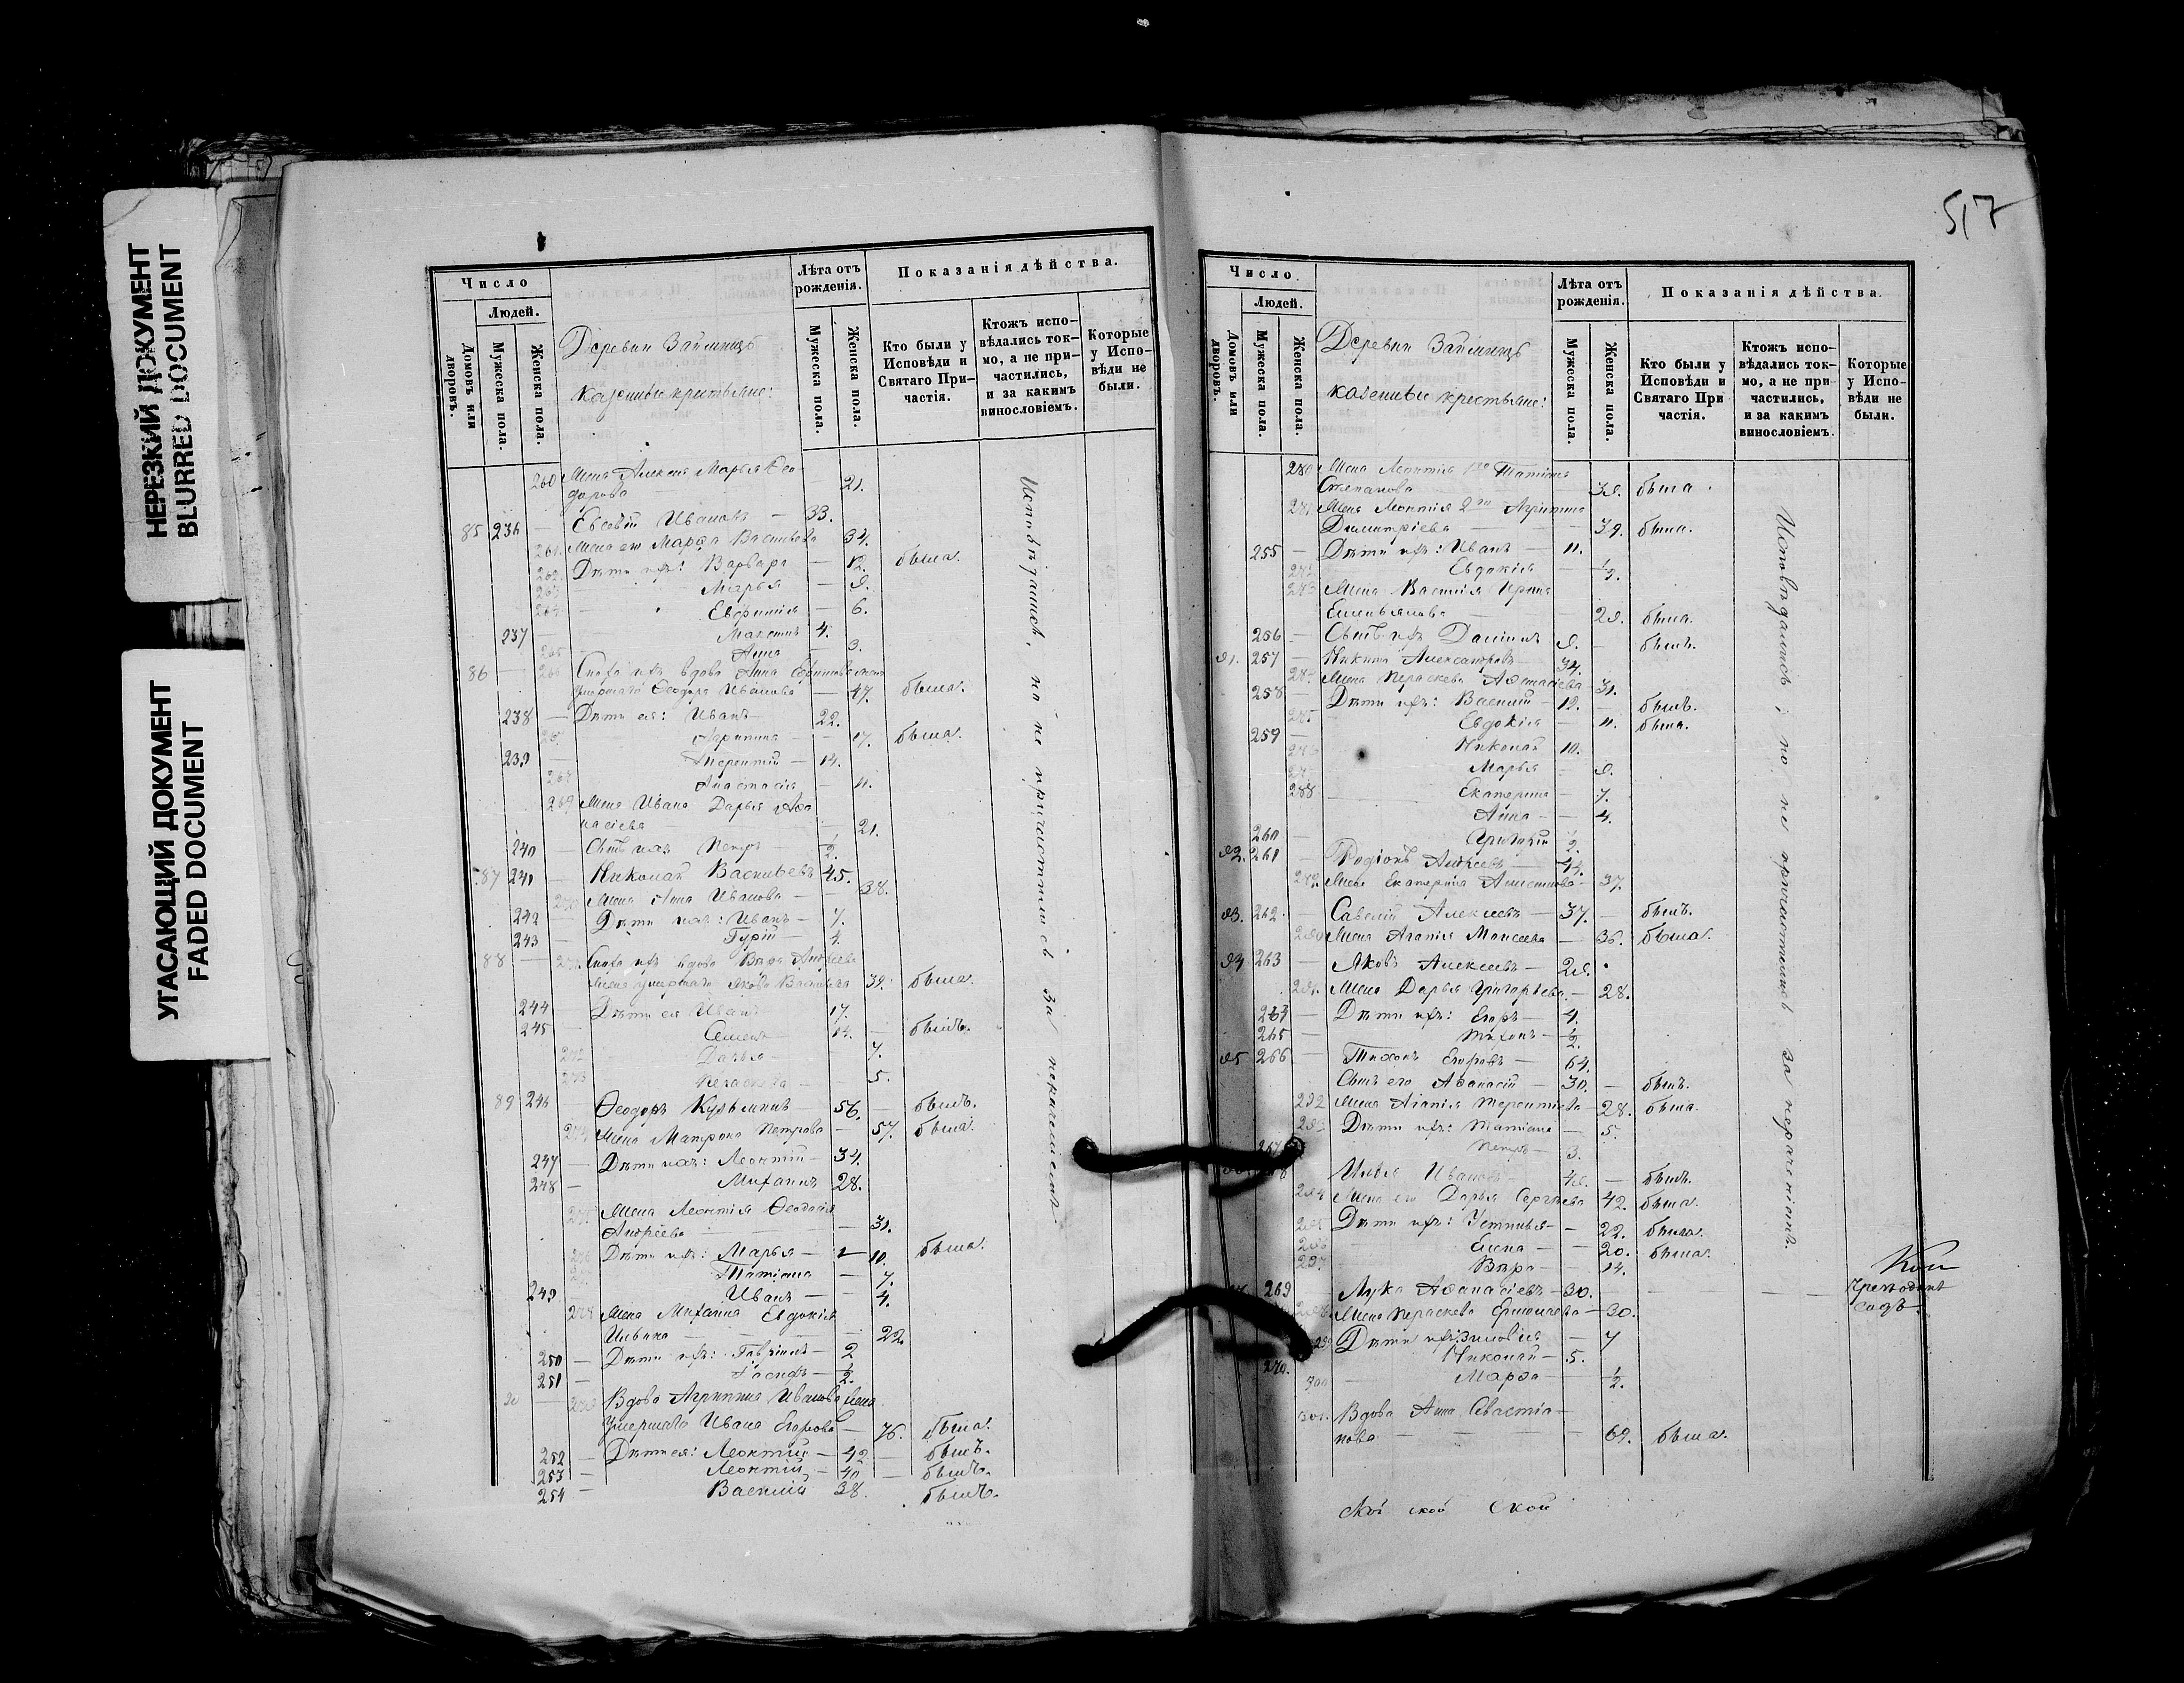 НЕРЕЗКИЙ ДОКУМЕНТ
BLURRED DOCUMENT
УГАСАЮЩИЙ ДОКУМЕНТ
FADED DOCUMENT
Число
Людей.
Домовъ или дворовъ.
Мужеска пола.
Женска пола.
Деревни
казенные крестьяне:
Лѣта отъ рожденія.
Мужеска пола.
Женска пола.
Показанія дѣйства.
Кто были у Исповѣди и Святаго При-
частія.
Ктожъ испо-
вѣдались ток-
мо, а не при-
частились,
и за какимъ
винословіемъ.
Которые
у Испо-
вѣди не
были.
260 Жена Алексѣя Марья Ѳео-
дорова — 21.
85 236 — Евсевій Ивановъ — 33.
261. Жена его Марѳа Васильева 34.
262. Дѣти ихъ: Варвара — 12. была.
263 Марья — 9.
264 Евфимія — 6.
237 — Максимъ 4.
265 Анна — 3.
86 — 266 Сноха ихъ вдова Анна
умершаго Ѳеодора Иванова — 47. была.
238 — Дѣти ея: Иванъ — 22.
Агрипина — 17. была.
239 — Терентій — 14.
268 Анастасія — 11.
269 Жена Ивана Дарья Аѳа
насіева — 21.
240 — Сынъ ихъ Петръ — ½.
87 241 — Николай Васильевъ 45.
270 Жена Анна Иванова — 38.
242 — Дѣти ихъ: Иванъ — 7.
243 — Гурій — 4.
88 — 271. Сноха ихъ вдова Вѣра Андреева
жена умершаго Якова Васильева 39. была.
244 Дѣти ея Иванъ 17.
245 — Семенъ — 14. былъ.
272 Дарья — 7.
273 Параскева — 5.
89 246 Ѳеодоръ Кузьминъ — 56. — былъ.
274 Жена Матрона Петрова — 57. была.
247 — Дѣти ихъ: Леонтій — 34.
248 — Михаилъ 28.
275 Жена Леонтія Ѳеодосія
Андреева — 31.
276 Дѣти ихъ: Марья — 10. была.
Татіана — 7.
249 — Иванъ — 4.
278 Жена Михаила Евдокія
Ильина — 22
250 — Дѣти ихъ: Гавріилъ — 2
251 — Іосифъ — ½.
— 279 Вдова Агрипина Иванова жена
умершаго Ивана Егорова — 76. была.
252 — Дѣти ея: Леонтій — 42 — былъ.
253 — Леонтій — 40 — былъ.
254 — Василій 38. былъ.
Исповѣдались, но не причастились за нерачением.
517
Число.
Людей.
Домовъ или дворовъ.
Мужеска пола.
Женска пола.
Деревни
казенные крестьяне:
Лѣта отъ рожденія.
Мужеска пола.
Женска пола.
Показанія дѣйства.
Кто были у Исповѣди и Святаго При
частія.
Ктожъ испо-
вѣдались ток-
мо, а не при-
частились,
и за какимъ
винословіемъ.
Которые
у Испо-
вѣди не
были.
280 Жена Леонтія 1го Татіана
Степанова — 39. была.
281 Жена Леонтія 2го Агрипина
Димитріева — 39. была.
255 — Дѣти ихъ: Иванъ — 11.
282 Евдокія — ½.
283 Жена Василія Ирина
Емельянова — 29. была.
256 — Сынъ ихъ Даніилъ 9. — былъ.
91. 257 — Никита Александровъ 34.
284 Жена Параскева 31.
258 — Дѣти ихъ: Василій — 12. — былъ.
285 Евдокія — 11. была.
259 — Николай 10.
286 Марья — 9.
287 Екатерина — 7.
288 Анна — 4.
260 — Григорій ½.
92. 261 — Родіонъ Алексѣевъ — 44.
289. Жена Екатерина — 37.
93. 262 — Савелій Алексеевъ — 37. — былъ.
290 Жена Агапія Моисеева — 36. была.
94 263 — Яковъ Алексеевъ — 29.
291. Жена Дарья Григорьева — 28.
264 — Дѣти ихъ: Егоръ — 4.
265 — Тихонъ — ½.
95 266 — Тихонъ Егоровъ — 64.
Сынъ его Аѳанасій — 30. — былъ.
292 Жена Агапія Терентіева — 28. была.
293 Дѣти ихъ: Татіана — 5.
267 Петръ — 3.
Илья Ивановъ — — былъ.
294 Жена его Дарья Сергѣева 42. была.
295 Дѣти ихъ: Устинья — 22. была.
296 Елена — 20. была.
297 Вѣра — 14.
269 Лука Аѳанасіевъ — 30. — —
298 Жена Параскева — 30.
299 Дѣти ихъ: Зиновія — 7
270. Николай — 5.
300 — Марѳа ½.
301. Вдова Анна Севастіа-
нова — 69. была.
Исповѣдались, но не причастились за нерачением.
ской ской Ской